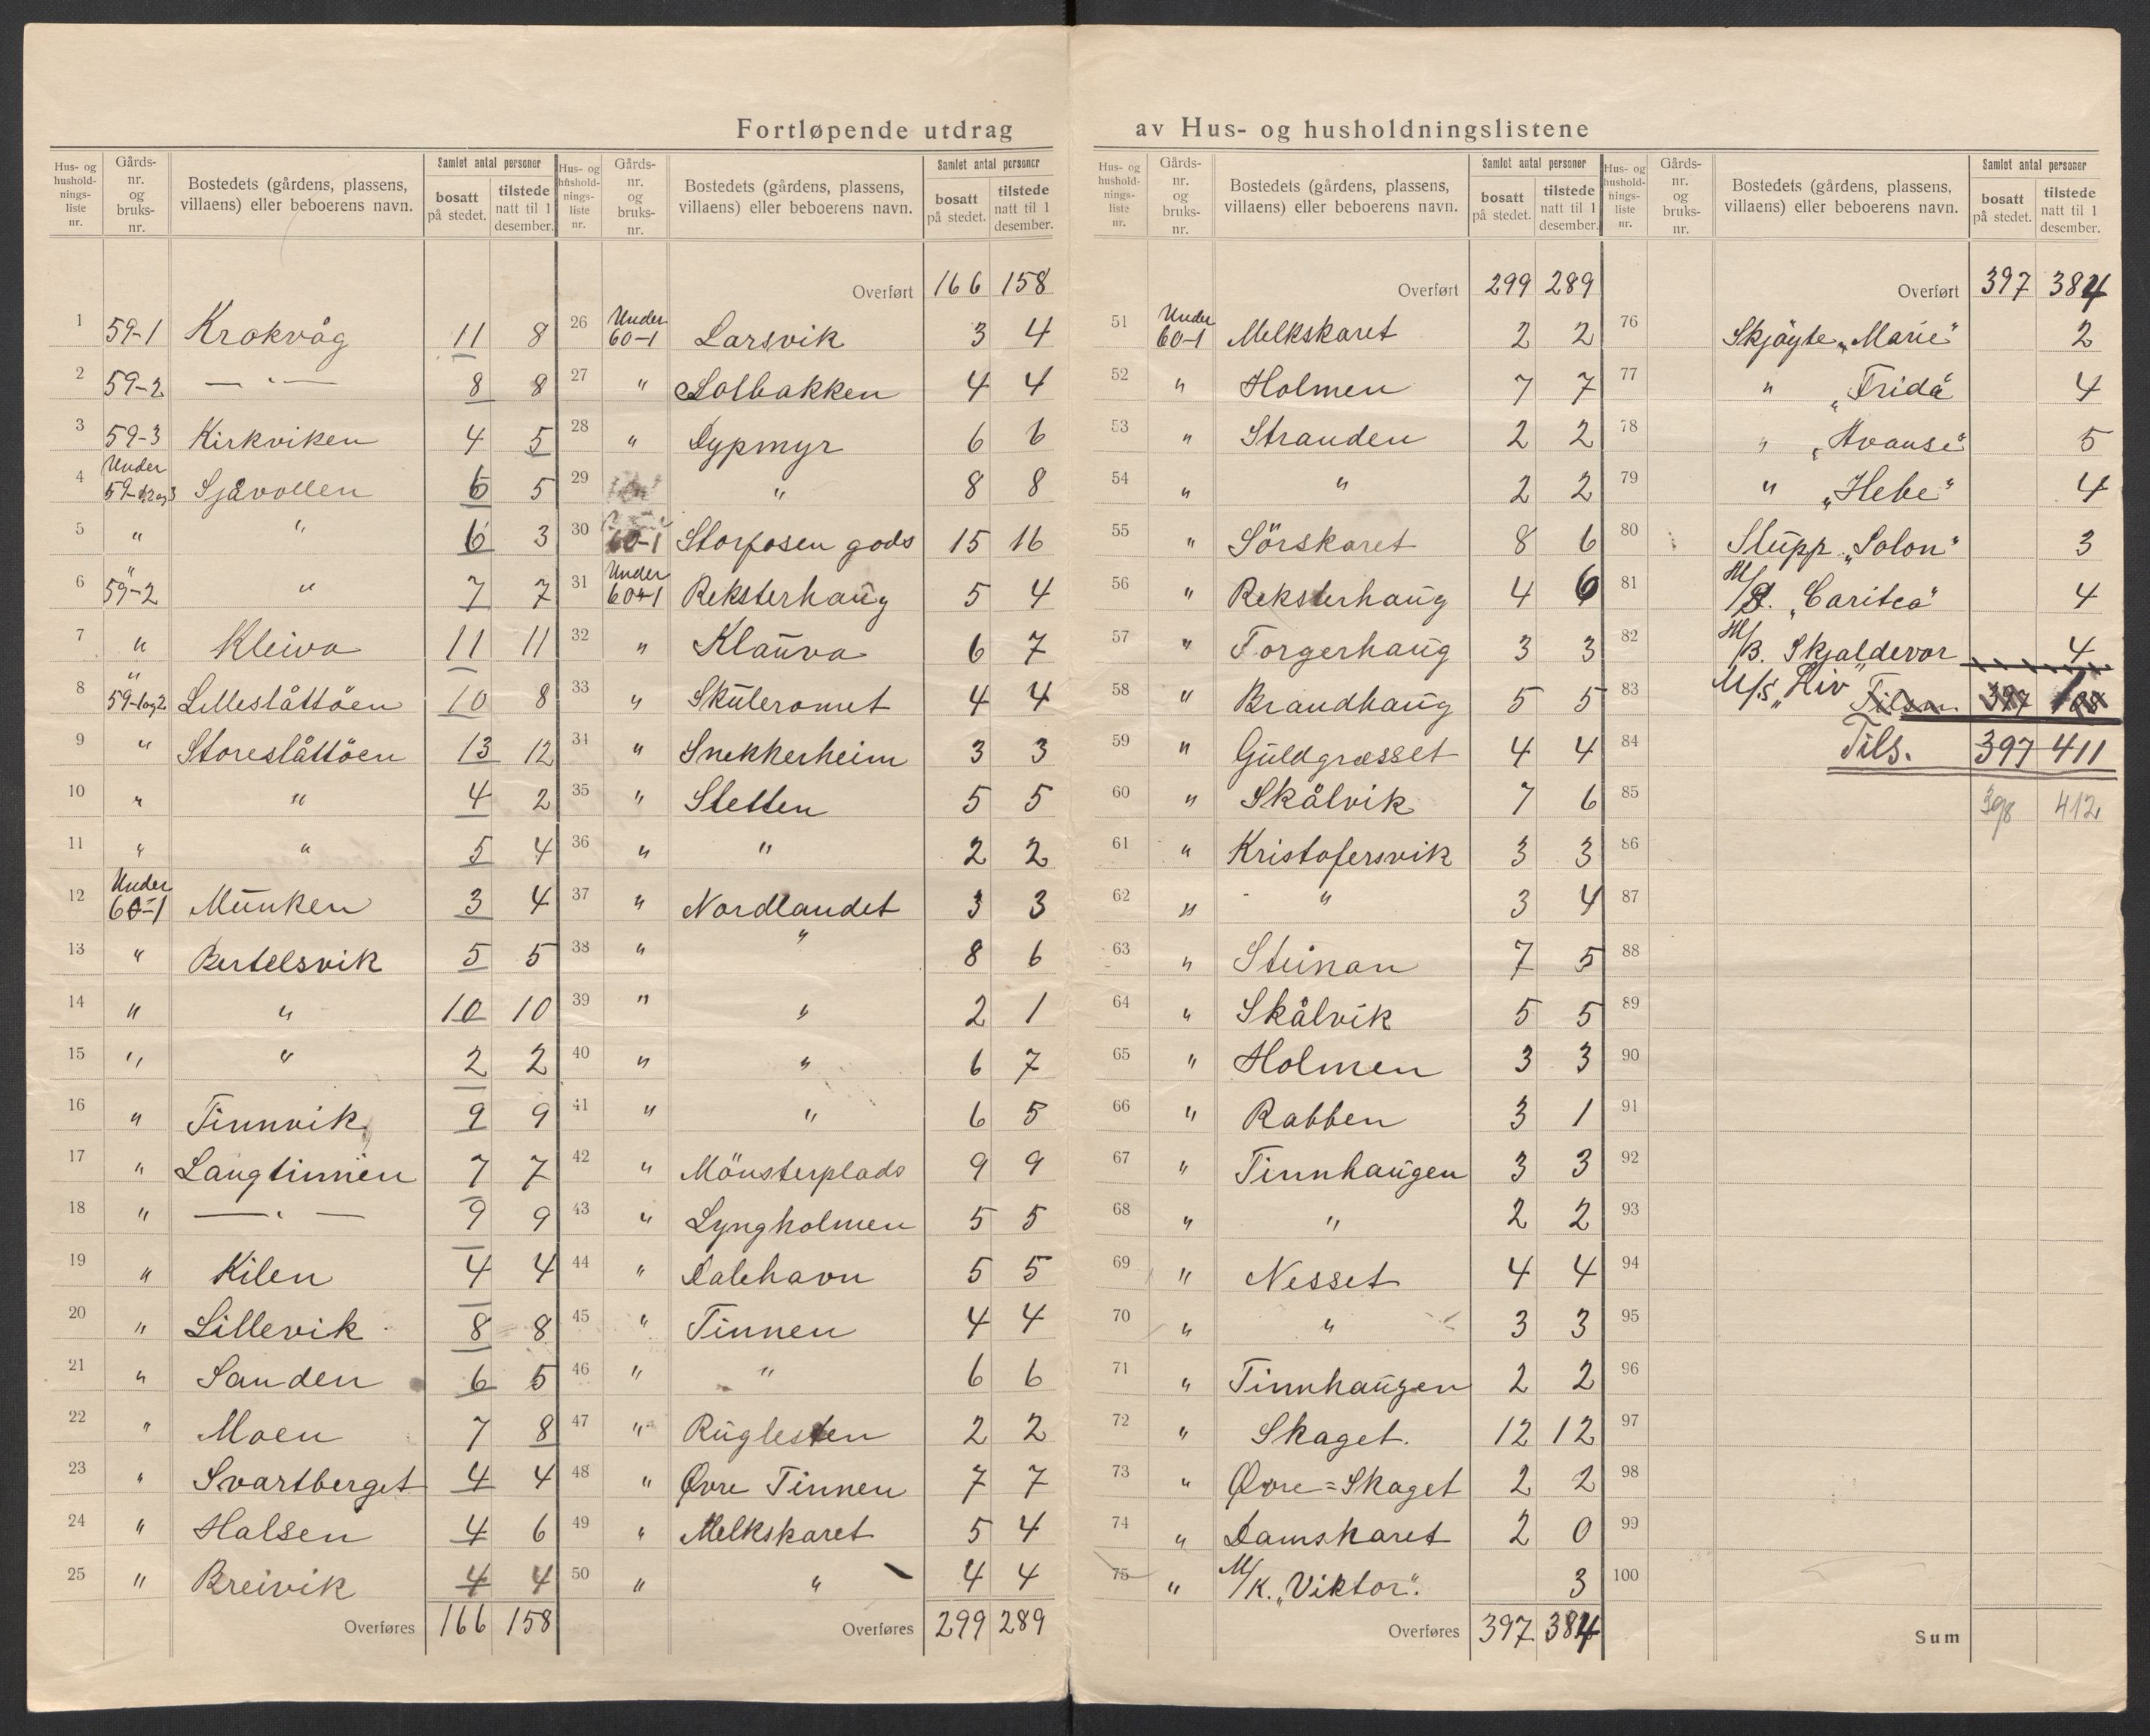 Fortløpende utdrag av Hus- og husholdningslistene
Hus- og husholdnings- liste nr. | Gårds- nr. og bruks- nr. | Bostedets (gårdens, plassens, villaens) eller beboerens navn. | Samlet antal personer | bosatt på stedet. | tilstede natt til 1 desember.
1 59-1 Krokvåg 11 8
2 59-2 — " — 8 8
3 59-3 Kirkviken 4 5
4 Under 59-1,2 og 3 Sjåvollen 6 5
5 " " 6 3
6 " 59-2 " 7 7
7 " Kleiva 11 11
8 " 59-1og2 Lilleslåttöen 10 8
9 " Storeslåttöen 13 12
10 " " 4 2
11 " " 5 4
12 Under 60-1 Munken 3 4
13 " Bertelsvik 5 5
14 " " 10 10
15 " " 2 2
16 " Tinnvik 9 9
17 " Langtinnen 7 7
18 " — " — 9 9
19 " Kilen 4 4
20 " Lillevik 8 8
21 " Sanden 6 5
22 " Moen 7 8
23 " Svartberget 4 4
24 " Halsen 4 6
25 " Breivik 4 4
Overføres 166 158
Hus- og husholdnings- liste nr. | Gårds- nr. og bruks- nr. | Bostedets (gårdens, plassens, villaens) eller beboerens navn. | Samlet antal personer | bosatt på stedet. | tilstede natt til 1 desember.
Overført 166 158
26 Under 60-1 Larsvik 3 4
27 " Solbakken 4 4
28 " Dypmyr 6 6
29 " 8 8
30 60-1 Storfosen gods 15 16
31 Under 60-1 Reksterhaug 5 4
32 " Klauva 6 7
33 " Skuleromet 4 4
34 " Snekkerheim 3 3
35 " Sletten 5 5
36 " " 2 2
37 " Nordlandet 3 3
38 " " 8 6
39 " " 2 1
40 " " 6 7
41 " " 6 5
42 " Mönsterplads 9 9
43 " Lyngholmen 5 5
44 " Dalehavn 5 5
45 " Tinnen 4 4
46 " " 6 6
47 " Ruglesten 2 2
48 " Øvre Tinnen 7 7
49 " Melkskaret 5 4
50 " " 4 4
Overføres 299 289
Hus- og husholdnings- liste nr. | Gårds- nr. og bruks- nr. | Bostedets (gårdens, plassens, villaens) eller beboerens navn. | Samlet antal personer | bosatt på stedet. | tilstede natt til 1 desember.
Overført 299 289
51 Under 60-1 Melkskaret 2 2
52 " Holmen 7 7
53 " Stranden 2 2
54 " " 2 2
55 " Sörskaret 8 6
56 " Reksterhaug 4 6
57 " Torgerhaug 3 3
58 " Brandhaug 5 5
59 " Guldgræsset 4 4
60 " Skålvik 7 6
61 " Kristofersvik 3 3
62 " " 3 4
63 " Steinan 7 5
64 " Skålvik 5 5
65 " Holmen 3 3
66 " Rabben 3 1
67 " Tinnhaugen 3 3
68 " " 2 2
69 " Nesset 4 4
70 " " 3 3
71 " Tinnhaugen 2 2
72 " Skaget. 12 12
73 " Øvre=Skaget 2 2
74 " Damskaret 2 0
75 " M/K. „Viktor". 3
Overføres 397 384
Hus- og husholdnings- liste nr. | Gårds- nr. og bruks- nr. | Bostedets (gårdens, plassens, villaens) eller beboerens navn. | Samlet antal personer | bosatt på stedet. | tilstede natt til 1 desember.
Overført 397 384
76 Skjöyte „Marie" 2
77 " „Frida" 4
78 " 5
79 " „Hebe" 4
80 Slupp „Solon" 3
81 M/S. „Caritea" 4
82 M/B. Skjaldevor 4
83 M/S „Liv" Tilsm. 397
84 Tils. 397 411
85 398 412
86
87
88
89
90
91
92
93
94
95
96
97
98
99
100
Sum